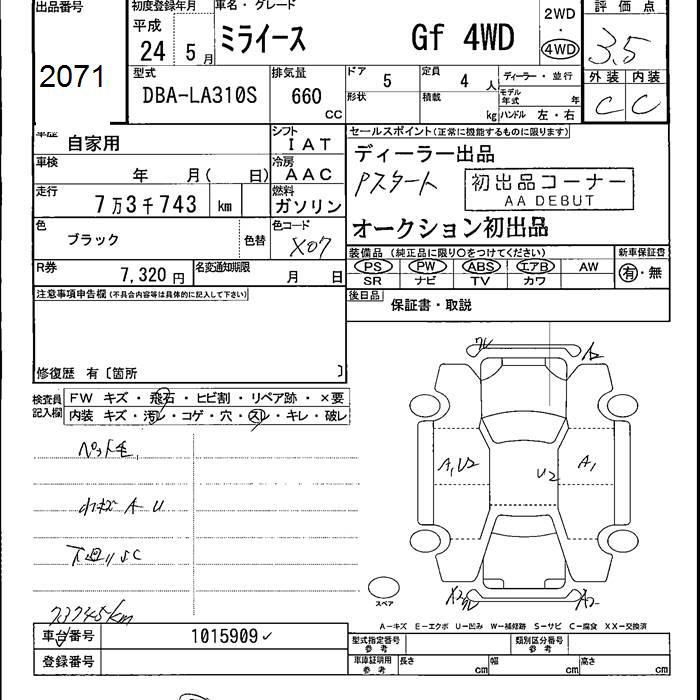 出品番号 初度登録年月 車名・グレード 2WD 評価点
平成 24年 5月 ミライース Gf 4WD 4WD 3.5
2071 型式 排気量 ドア 5 定員 4人 ディーラー・並行 外装 内装
DBA-LA310S 660 CC 形状 積載 kg モデル年式 年 ハンドル 左・右 C C
車歴 自家用 シフト IAT セールスポイント(正常に機能するものに限ります)
車検 年 月( 日) 冷房 AAC ディーラー出品
Pスタート 初出品コーナー
AA DEBUT
走行 7万3千743 km 燃料 ガソリン オークション初出品
色 ブラック 色替 色コード X07 装備品(純正品に限り○をつけてください) 新車保証書
PS PW ABS エアB AW 有・無
R券 7,320円 名変通知期限 月 日 SR ナビ TV カワ
注意事項申告欄(不具合内容等は具体的に記入して下さい) 後日品 保証書・取説
修復歴 有〔箇所 〕
検査員記入欄 FW キズ・飛石・ヒビ割・リペア跡・×要
内装 キズ・汚レ・コゲ・穴・スレ・キレ・破レ
A2
A1U2 U2 A1
ペット毛
小キズ A U
下廻りSC
73745km
スペア
X2 A2
A-キズ E-エクボ U-凹み W-補修跡 S-サビ C-腐食 XX-交換済
車台番号 1015909✓ 型式指定番号 参考 類別区分番号 参考
登録番号 車庫証明用 参考 長さ cm 幅 cm 高さ cm